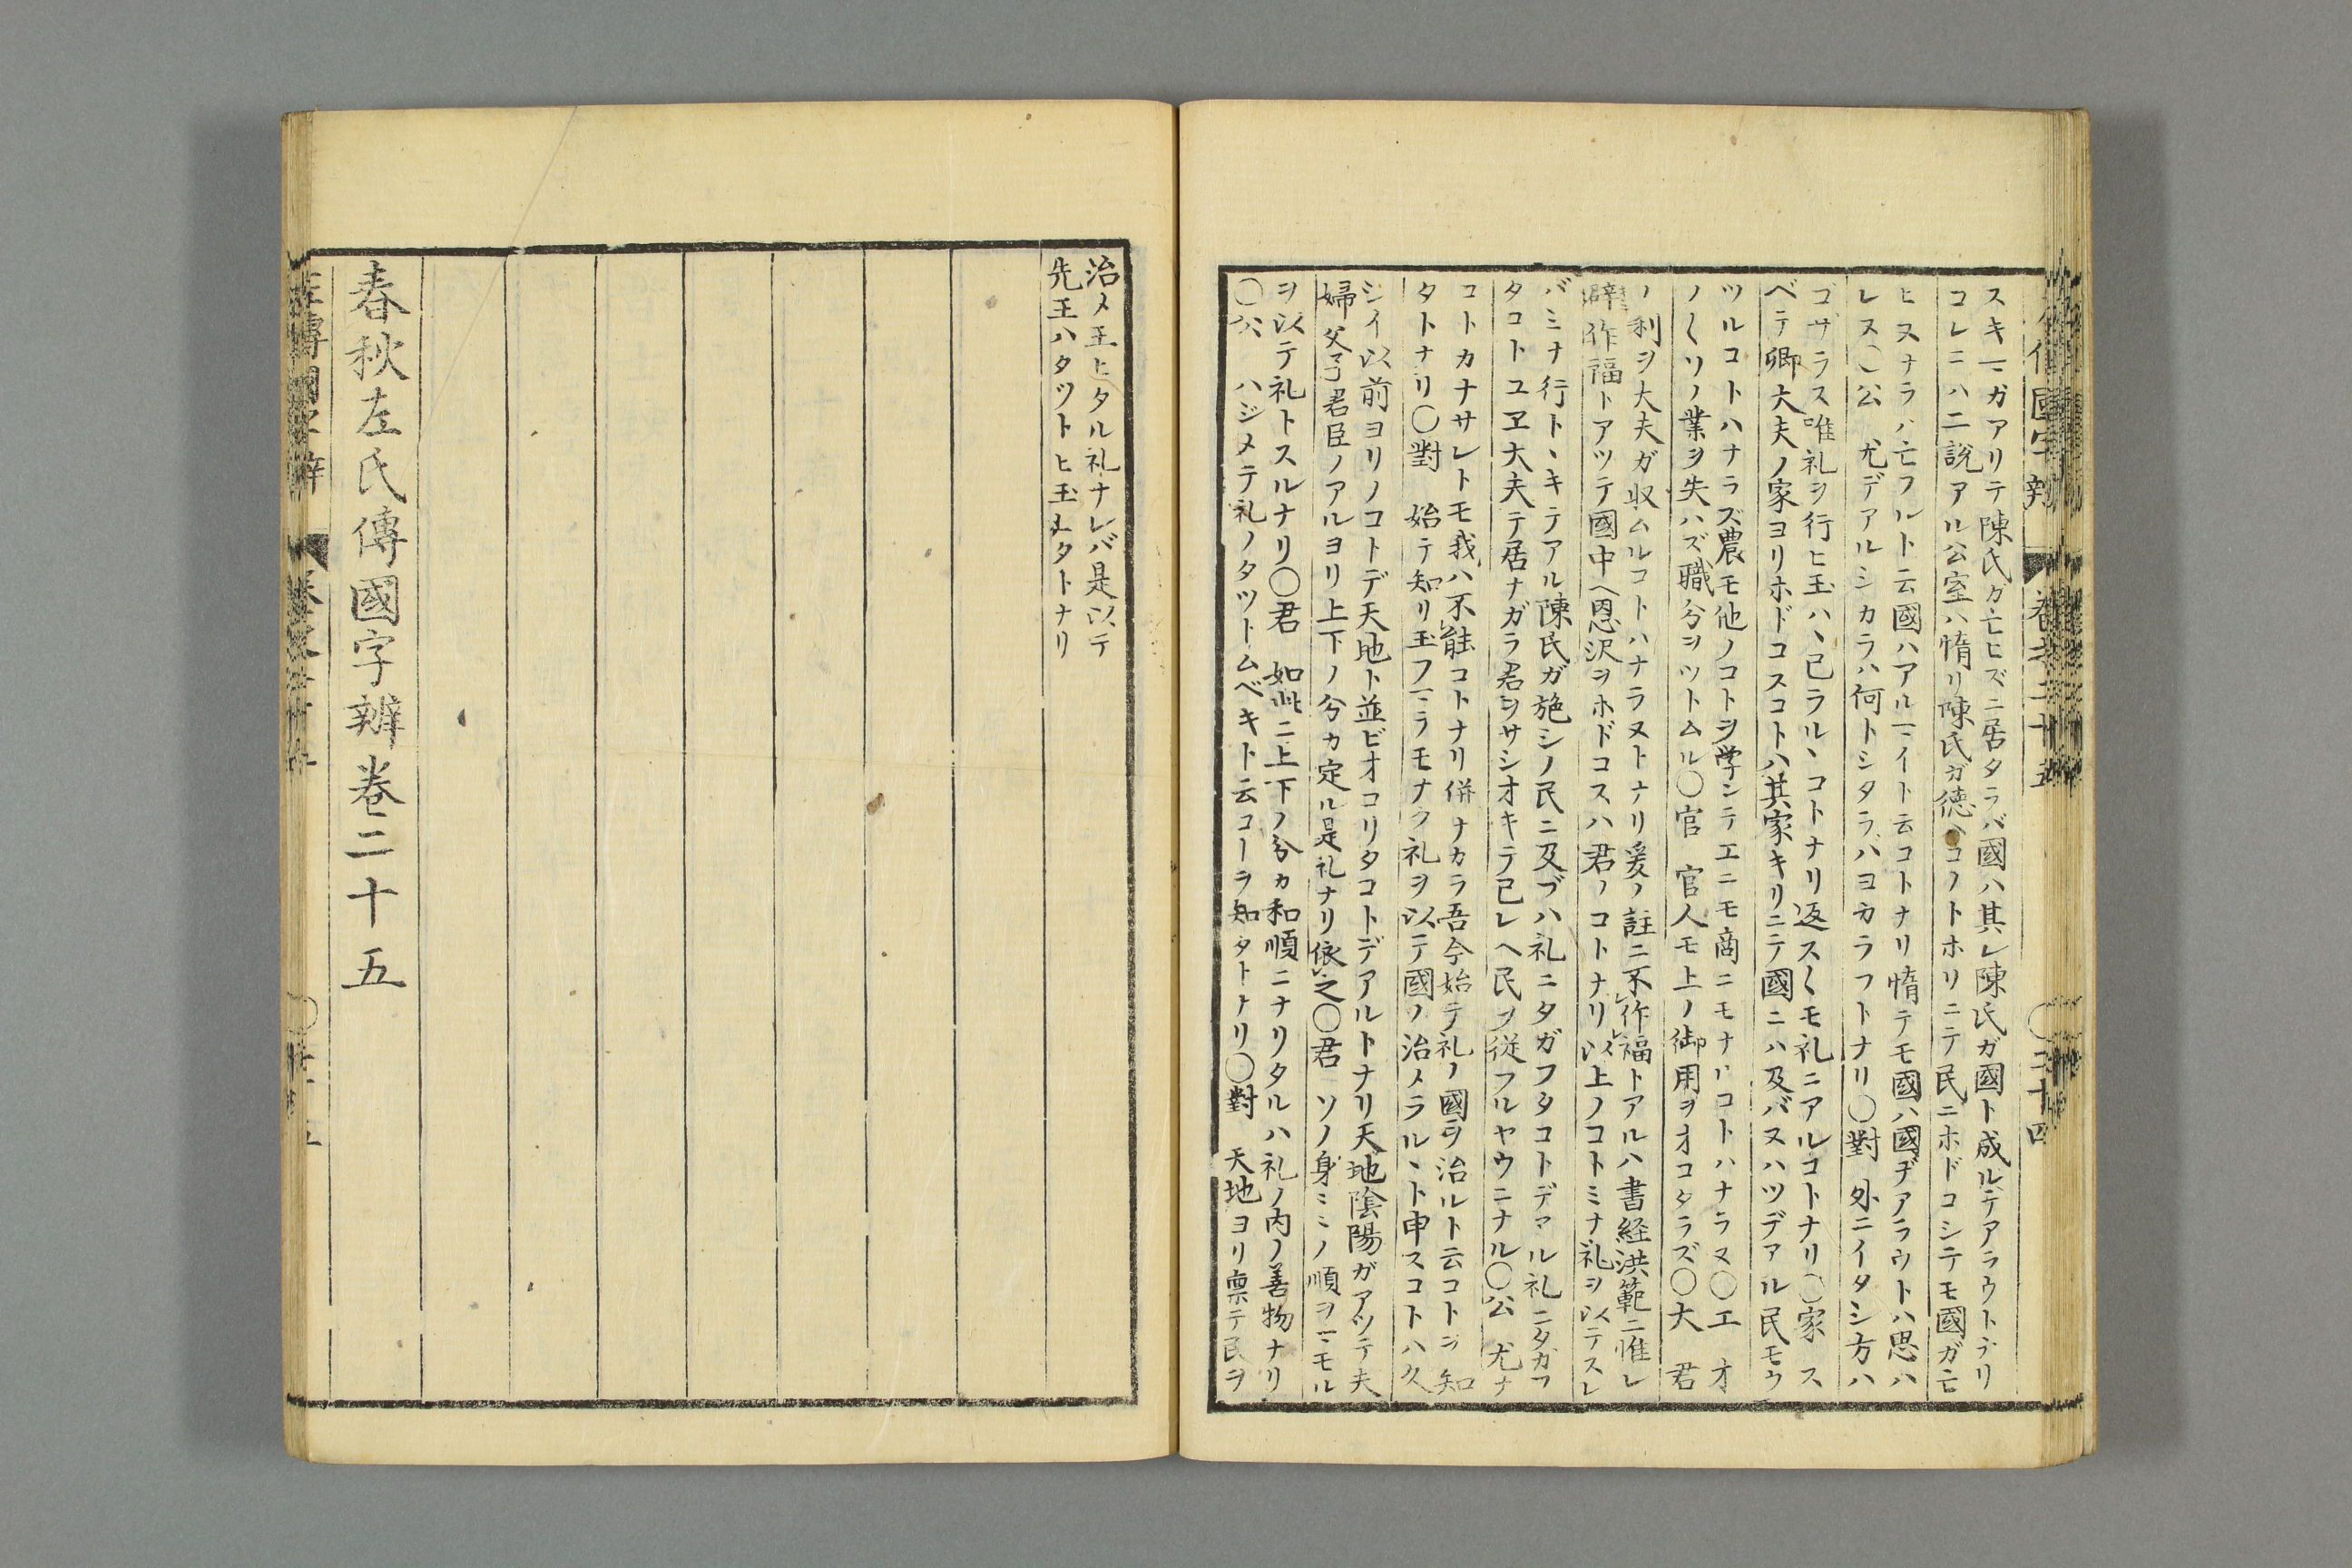 スキヿガアリテ陳氏ガ亡ヒズニ居タラバ國ハ其レ陳氏ガ國ト成ルデアラウトナリ
コレニハ二說アル公室ハ惰リ陳氏ガ德ハコノトホリニテ民ニホドコシテモ國ガ亡
ヒヌナラハ亡フルト云國ハアルヿイト云コトナリ惰テモ國ハ國ヂアラウトハ思ハ
レヌ〇公　尤デアルシカラハ何トシタラハヨカラフトナリ〇對　外ニイタシ方ハ
ゴサラス唯礼ヲ行ヒ玉ハヽ已ラルヽコトナリ返ス〱モ礼ニアルコトナリ〇家　ス
ベテ卿大夫ノ家ヨリホドコスコトハ其家キリニテ國ニハ及バヌハツデアル民モウ
ツルコトハナラズ農モ他ノコトヲ学ンテエニモ商ニモナルコトハナラヌ〇工　オ
ノ〱ソノ業ヲ失ハズ職分ヲツトムル〇官　官人モ上ノ御用ヲオコタラズ〇大　君
ノ利ヲ大夫ガ収ムルコトハナラヌトナリ爰ノ註ニ不作福トアルハ書経洪範ニ惟レ
辟作福トアツテ國中ヘ恩沢ヲホドコスハ君ノコトナリ以上ノコトミナ礼ヲ以テスレ
バミナ行トヽキテアル陳民ガ施シノ民ニ及ブハ礼ニタガフタコトデアル礼ニタガフ
タコトユヱ大夫テ居ナガラ君ヲサシオキテ已レヘ民ヲ従フルヤウニナル〇公　尤ナ
コトカナサレトモ我ハ不能コトナリ併ナカラ吾今始テ礼ノ國ヲ治ルト云コトヲ知
タトナリ〇對　始テ知リ玉フヿラモナク礼ヲ以テ國ノ治メラルヽト申スコトハ久
シイ以前ヨリノコトデ天地ト並ビオコリタコトデアルトナリ天地陰陽ガアツテ夫
婦父子君臣ノアルヨリ上下ノ分カ定ル是礼ナリ依之〇君　ソノ身ミミノ順ヲヿモル
ヲ以テ礼トスルナリ〇君　如此ニ上下ノ分カ和順ニナリタルハ礼ノ内ノ善物ナリ
〇公　ハジメテ礼ノタツトムベキト云コーラ知タトナリ〇對　天地ヨリ禀テ民ヲ
治メ玉ヒタル礼ナレバ是以テ
先王ハタツトヒ玉ヒタトナリ
春秋左氏傳國字辨卷二十五